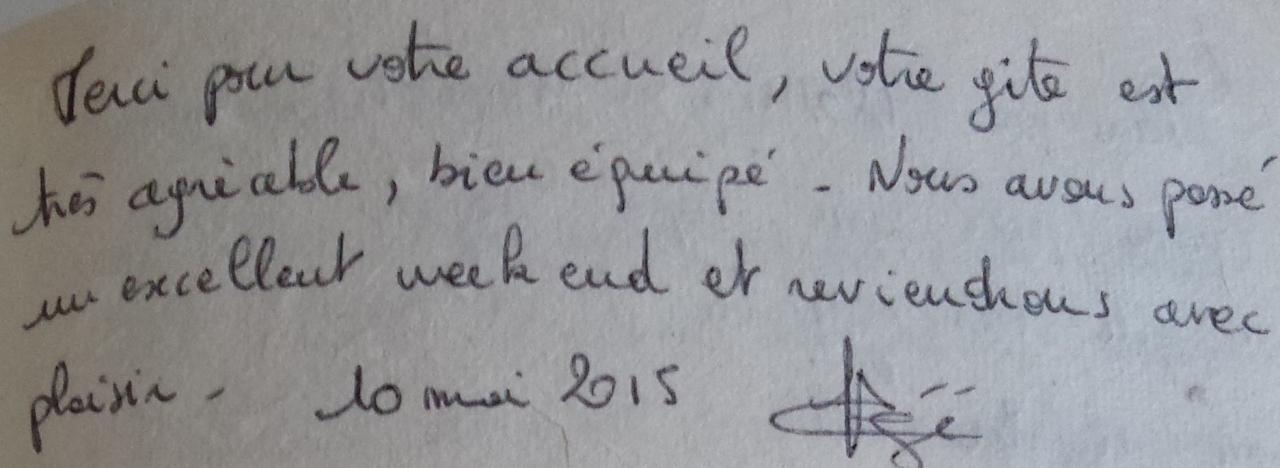 Merci pour votre accueil, votre gite est
très agréable, bien équipé - Nous avons passé
un excellent week end et reviendrons avec
plaisir - 10 mai 2015